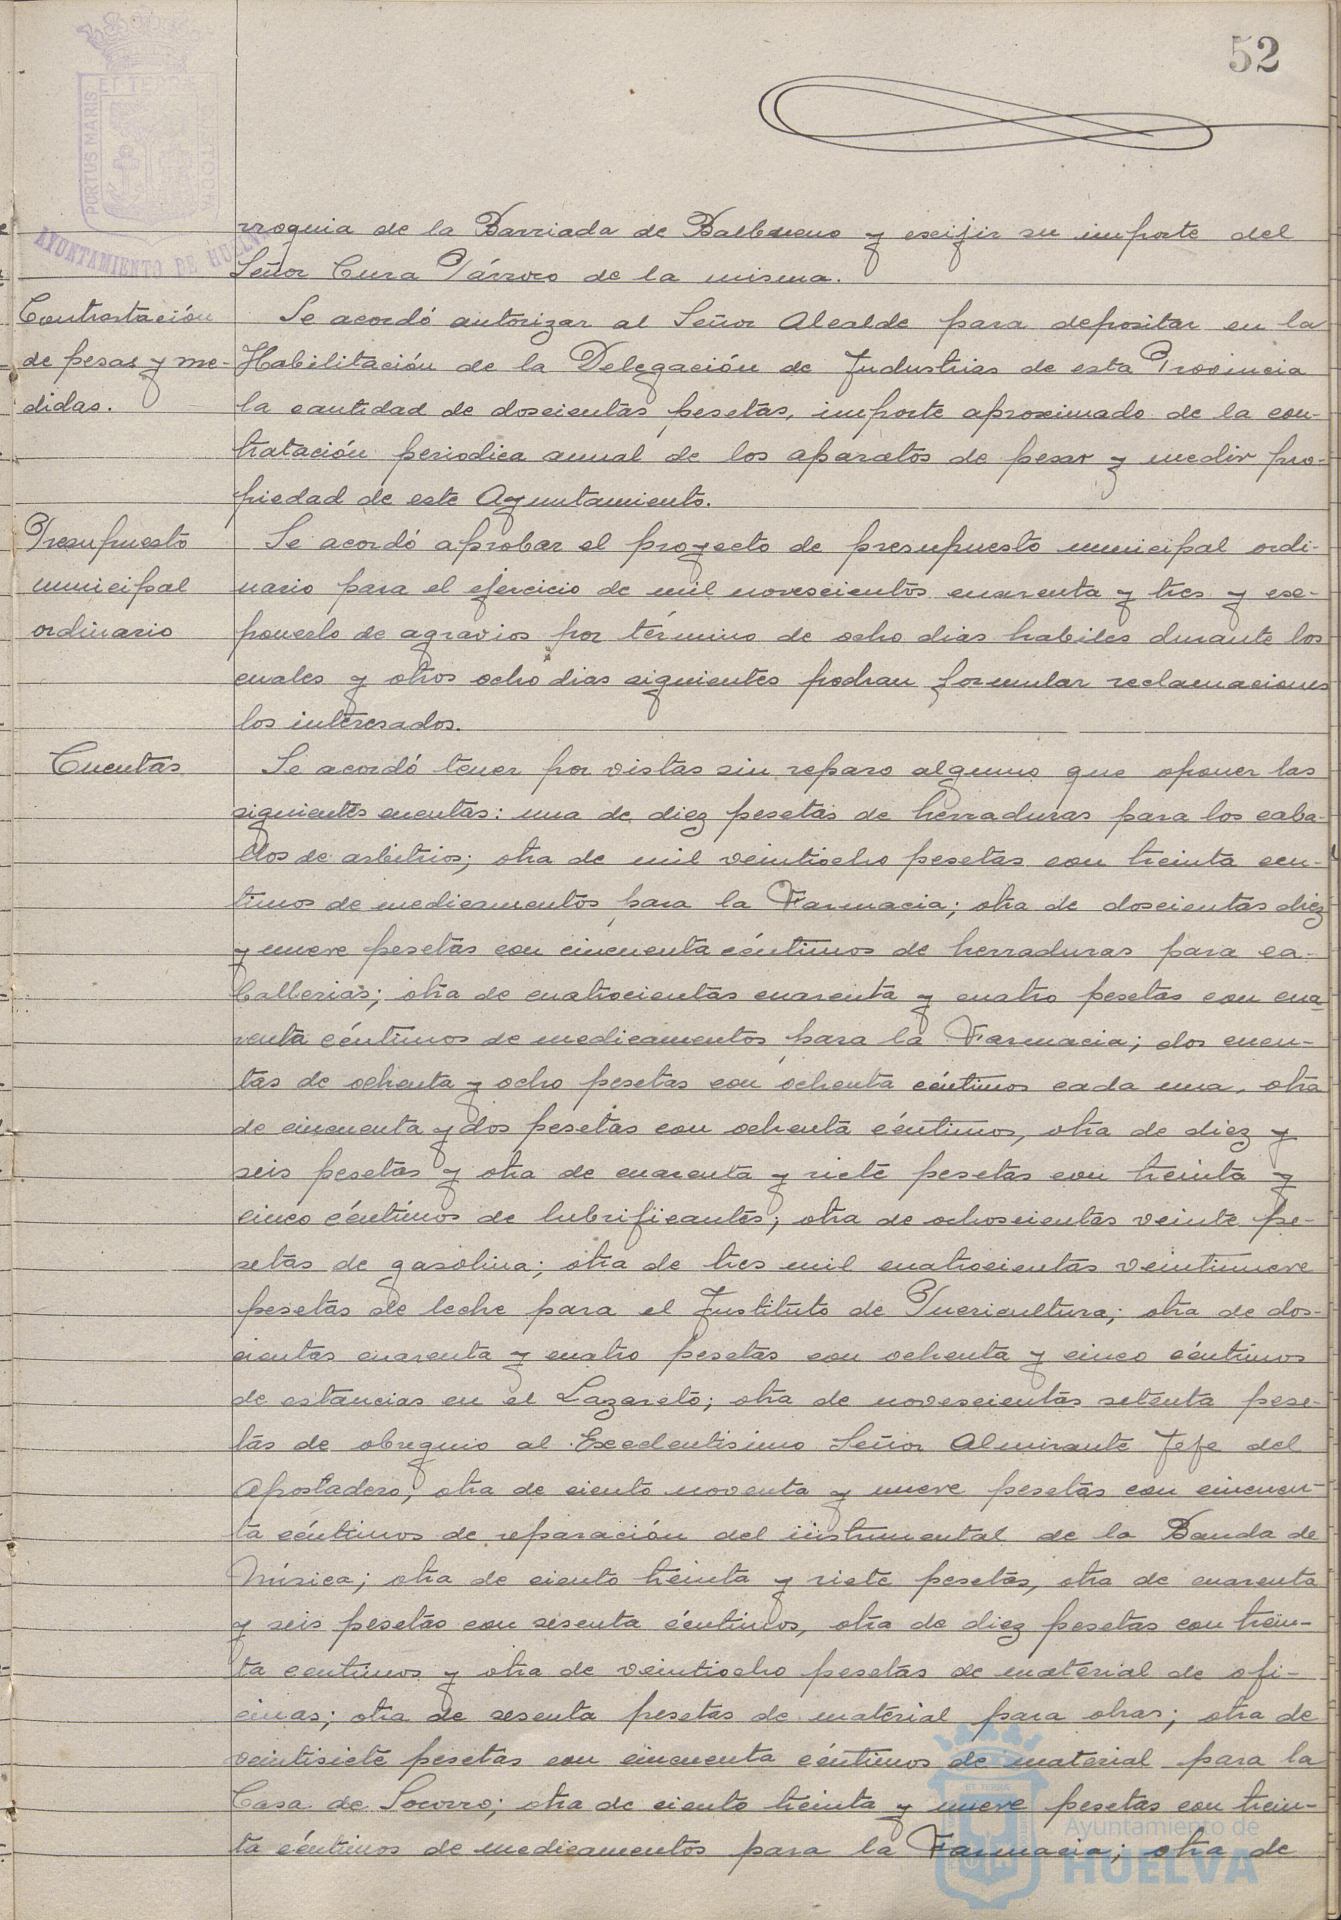 52
PORTUS MARIS
ET TERRÆ
CUSTODIA
AYUNTAMIENTO DE HUELVA
rroquia de la Barriada de Balbueno y exijir su importe del
Señor Cura Párroco de la misma.
Contrastación
de pesas y me-
didas.
Se acordó autorizar al Señor Alcalde para depositar en la
Habilitación de la Delegación de Industrias de esta Provincia
la cantidad de doscientas pesetas, importe aproximado de la con-
tratación periodica anual de los aparatos de pesar y medir pro-
piedad de este Ayuntamiento.
Presupuesto
municipal
ordinario
Se acordó aprobar el proyecto de presupuesto municipal ordi-
nario para el ejercicio de mil novescientos cuarenta y tres y ex-
ponerlo de agravios por término de ocho dias habiles durante los
cuales y otros ocho dias siguientes podran formular reclamaciones
los interesados.
Cuentas
Se acordó tener por vistas sin reparo alguno que oponer las
siguientes cuentas: una de diez pesetas de herraduras para los caba-
llos de arbitrios; otra de mil veintiocho pesetas con treinta cen-
timos de medicamentos para la Farmacia; otra de doscientas diez
y nueve pesetas con cincuenta céntimos de herraduras para ca-
ballerias; otra de cuatrocientas cuarenta y cuatro pesetas con cua-
renta céntimos de medicamentos para la Farmacia; dos cuen-
tas de ochenta y ocho pesetas con ochenta céntimos cada una, otra
de cincuenta y dos pesetas con ochenta céntimos, otra de diez y
seis pesetas y otra de cuarenta y siete pesetas con treinta y
cinco céntimos de lubrificantes; otra de ochoscientas veinte pe-
setas de gasolina; otra de tres mil cuatrocientas veintinueve
pesetas de leche para el Instituto de Puericultura; otra de dos-
cientas cuarenta y cuatro pesetas con ochenta y cinco céntimos
de estancias en el Lazareto; otra de novescientas setenta pese-
tas de obsequio al Excelentisimo Señor Almirante Jefe del
Apostadero; otra de ciento noventa y nueve pesetas con cincuen-
ta céntimos de reparación del instrumental de la Banda de
Música; otra de ciento treinta y siete pesetas, otra de cuarenta
y seis pesetas con sesenta céntimos, otra de diez pesetas con trein-
ta centimos y otra de veintiocho pesetas de material de ofi-
cinas; otra de sesenta pesetas de material para obras; otra de
veintisiete pesetas con cincuenta céntimos de material para la
Casa de Socorro; otra de ciento treinta y nueve pesetas con trein-
ta céntimos de medicamentos para la Farmacia; otra de
Ayuntamiento de
HUELVA